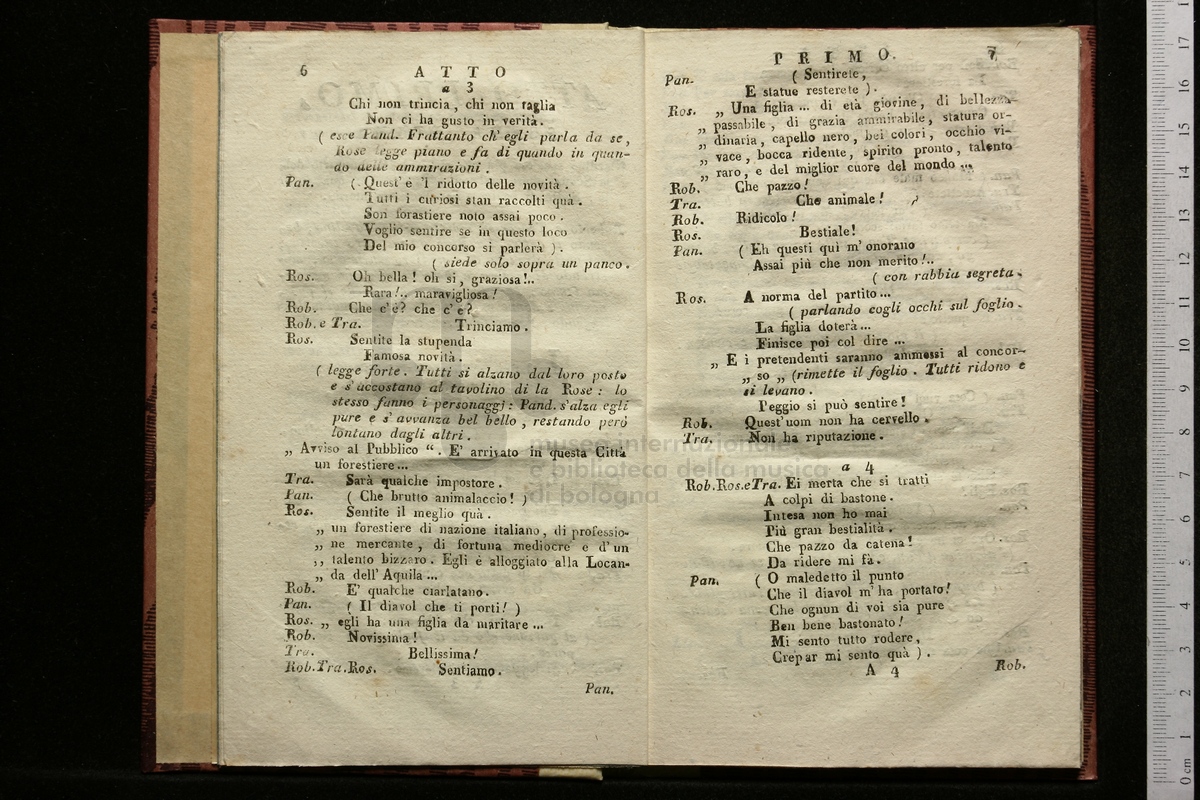 6 ATTO
a 3
Chi non trincia, chi non taglia
Non ci ha gusto in verità.
( esce Pand. Frattanto ch' egli parla da se,
Rose legge piano e fa di quando in quan-
do delle ammirazioni.
Pan. ( Quest' è 'l ridotto delle novità.
Tutti i curiosi stan raccolti quà.
Son forastiere noto assai poco.
Voglio sentire se in questo loco
Del mio concorso si parlerà ).
( siede solo sopra un panco.
Ros. Oh bella! oh si, graziosa!..
Rara!.. maravigliosa!
Rob. Che c'è? che c'è?
Rob. e Tra. Trinciamo.
Ros. Sentite la stupenda
Famosa novità.
( legge forte. Tutti si alzano dal loro posto
e s' accostano al tavolino di la Rose: lo
stesso fanno i personaggj: Pand. s'alza egli
pure e s' avvanza bel bello, restando però
lontano dagli altri.
„ Avviso al Pubblico “. E' arrivato in questa Città
un forestiere...
Tra. Sarà qualche impostore.
Pan. ( Che brutto animalaccio! )
Ros. Sentite il meglio quà.
„ un forestiere di nazione italiano, di professio-
„ ne mercante, di fortuna mediocre e d' un
„ talento bizzaro. Egli è alloggiato alla Locan-
„ da dell' Aquila...
Rob. E' qualche ciarlatano.
Pan. ( Il diavol che ti porti! )
Ros. „ egli ha una figlia da maritare...
Rob. Novissima!
Tra. Bellissima!
Rob. Tra. Ros. Sentiamo.
Pan.
PRIMO. 7
Pan. ( Sentirete,
E statue resterete ).
Ros. „ Una figlia... di età giovine, di bellezza
„ passabile, di grazia ammirabile, statura or-
„ dinaria, capello nero, bei colori, occhio vi-
„ vace, bocca ridente, spirito pronto, talento
„ raro, e del miglior cuore del mondo...
Rob. Che pazzo!
Tra. Che animale!
Rob. Ridicolo!
Ros. Bestiale!
Pan. ( Eh questi quì m' onorano
Assai più che non merito!..
( con rabbia segreta.
Ros. A norma del partito...
( parlando cogli occhi sul foglio.
La figlia doterà...
Finisce poi col dire...
„ E i pretendenti saranno ammessi al concor-
„ so „ (rimette il foglio. Tutti ridono e
si levano.
Peggio si può sentire!
Rob. Quest' uom non ha cervello.
Tra. Non ha riputazione.
a 4
Rob. Ros. e Tra. Ei merta che si tratti
A colpi di bastone.
Intesa non ho mai
Più gran bestialità.
Che pazzo da catena!
Da ridere mi fà.
Pan. ( O maledetto il punto
Che il diavol m' ha portato!
Che ognun di voi sia pure
Ben bene bastonato!
Mi sento tutto rodere,
Crepar mi sento quà ).
A 4 Rob.
museo internazionale
e biblioteca della musica
di bologna
0 cm 1 2 3 4 5 6 7 8 9 10 11 12 13 14 15 16 17